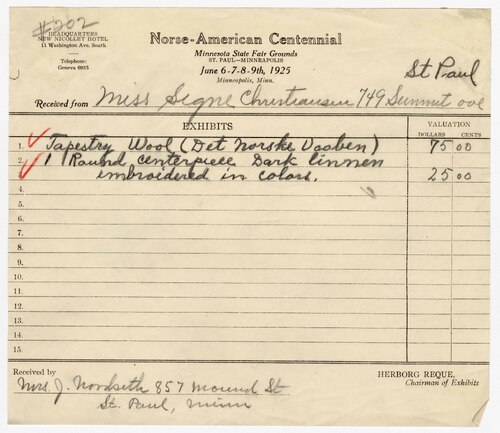 #202
HEADQUARTERS
NEW NICOLLET HOTEL
11 Washington Ave. South
Telephone:
Geneva 6935
Norse-American Centennial
Minnesota State Fair Grounds
ST. PAUL—MINNEAPOLIS
June 6-7-8-9th, 1925
Minneapolis, Minn.
St Paul
Received from Miss Signe Christiansen 749 Summit ave
EXHIBITS
VALUATION
DOLLARS CENTS
1. Tapestry Wool (Det Norske Vaaben) 75 00
2. 1 Round Centerpiece Dark linnen
3. embroidered in colors. 25 00
4.
5.
6.
7.
8.
9.
10.
11.
12.
13.
14.
15.
Received by
Mrs. J. Nordseth 857 Mound St
St. Paul, Minn
HERBORG REQUE,
Chairman of Exhibits